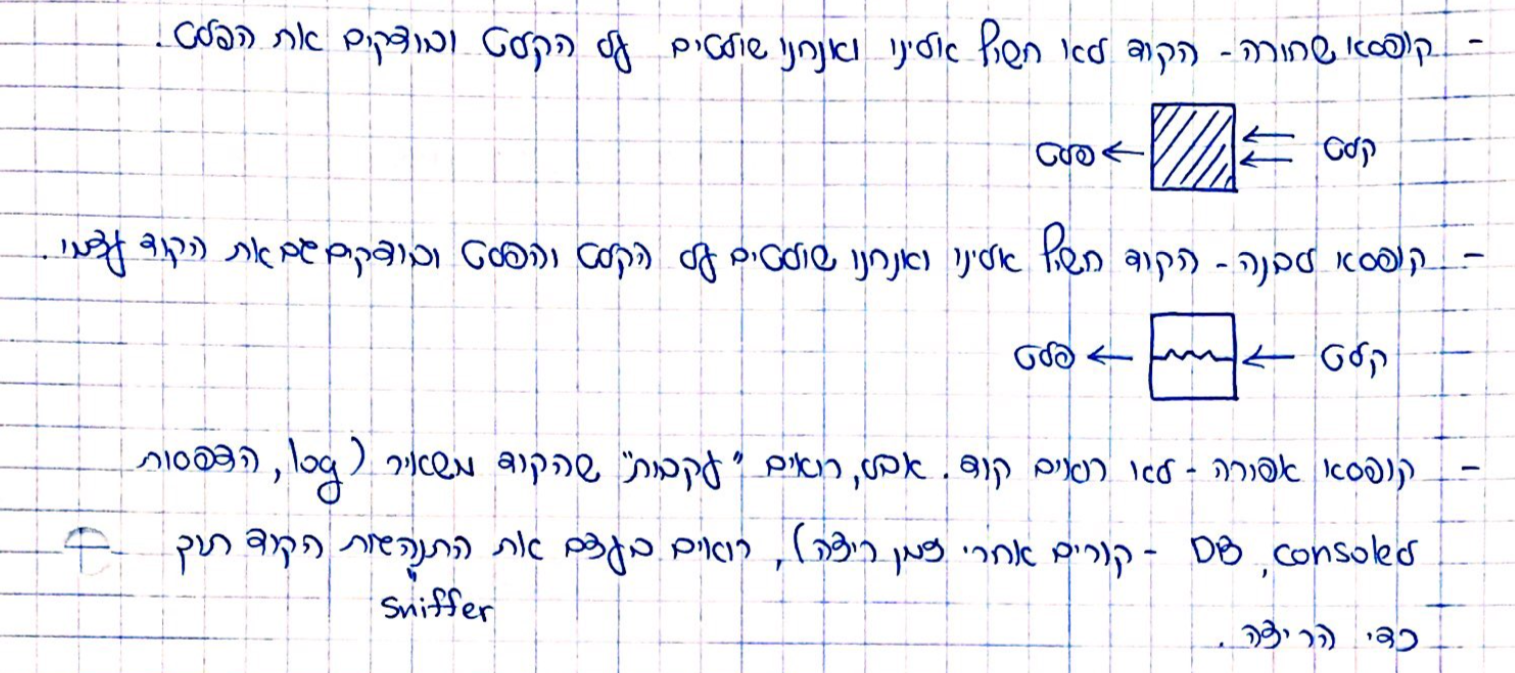 - קופסא שחורה - הקוד לא חשוף אלינו ואנחנו שולטים על הקלט ובודקים את הפלט.
קלט פלט
- קופסא לבנה - הקוד חשוף אלינו ואנחנו שולטים על הקלט והפלט ובודקים גם את הקוד עצמו.
קלט פלט
- קופסא אפורה - לא רואים קוד. אבל, רואים "עקבות" שהקוד משאיר (log, הדפסות
לconsole, DB - קורים אחרי זמן ריצה), רואים בעצם את התנהגות הקוד תוך
Sniffer
כדי הריצה.